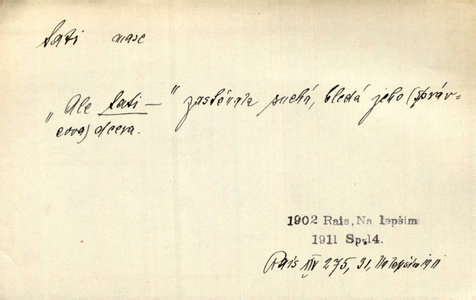 tati masc
„Ale tati —" zasténala suchá, bledá jeho (správ-
cova) dcera.
1902 Rais, Na lepším
1911 Sp.14.
Rais XIV 275, 31, Na lepším